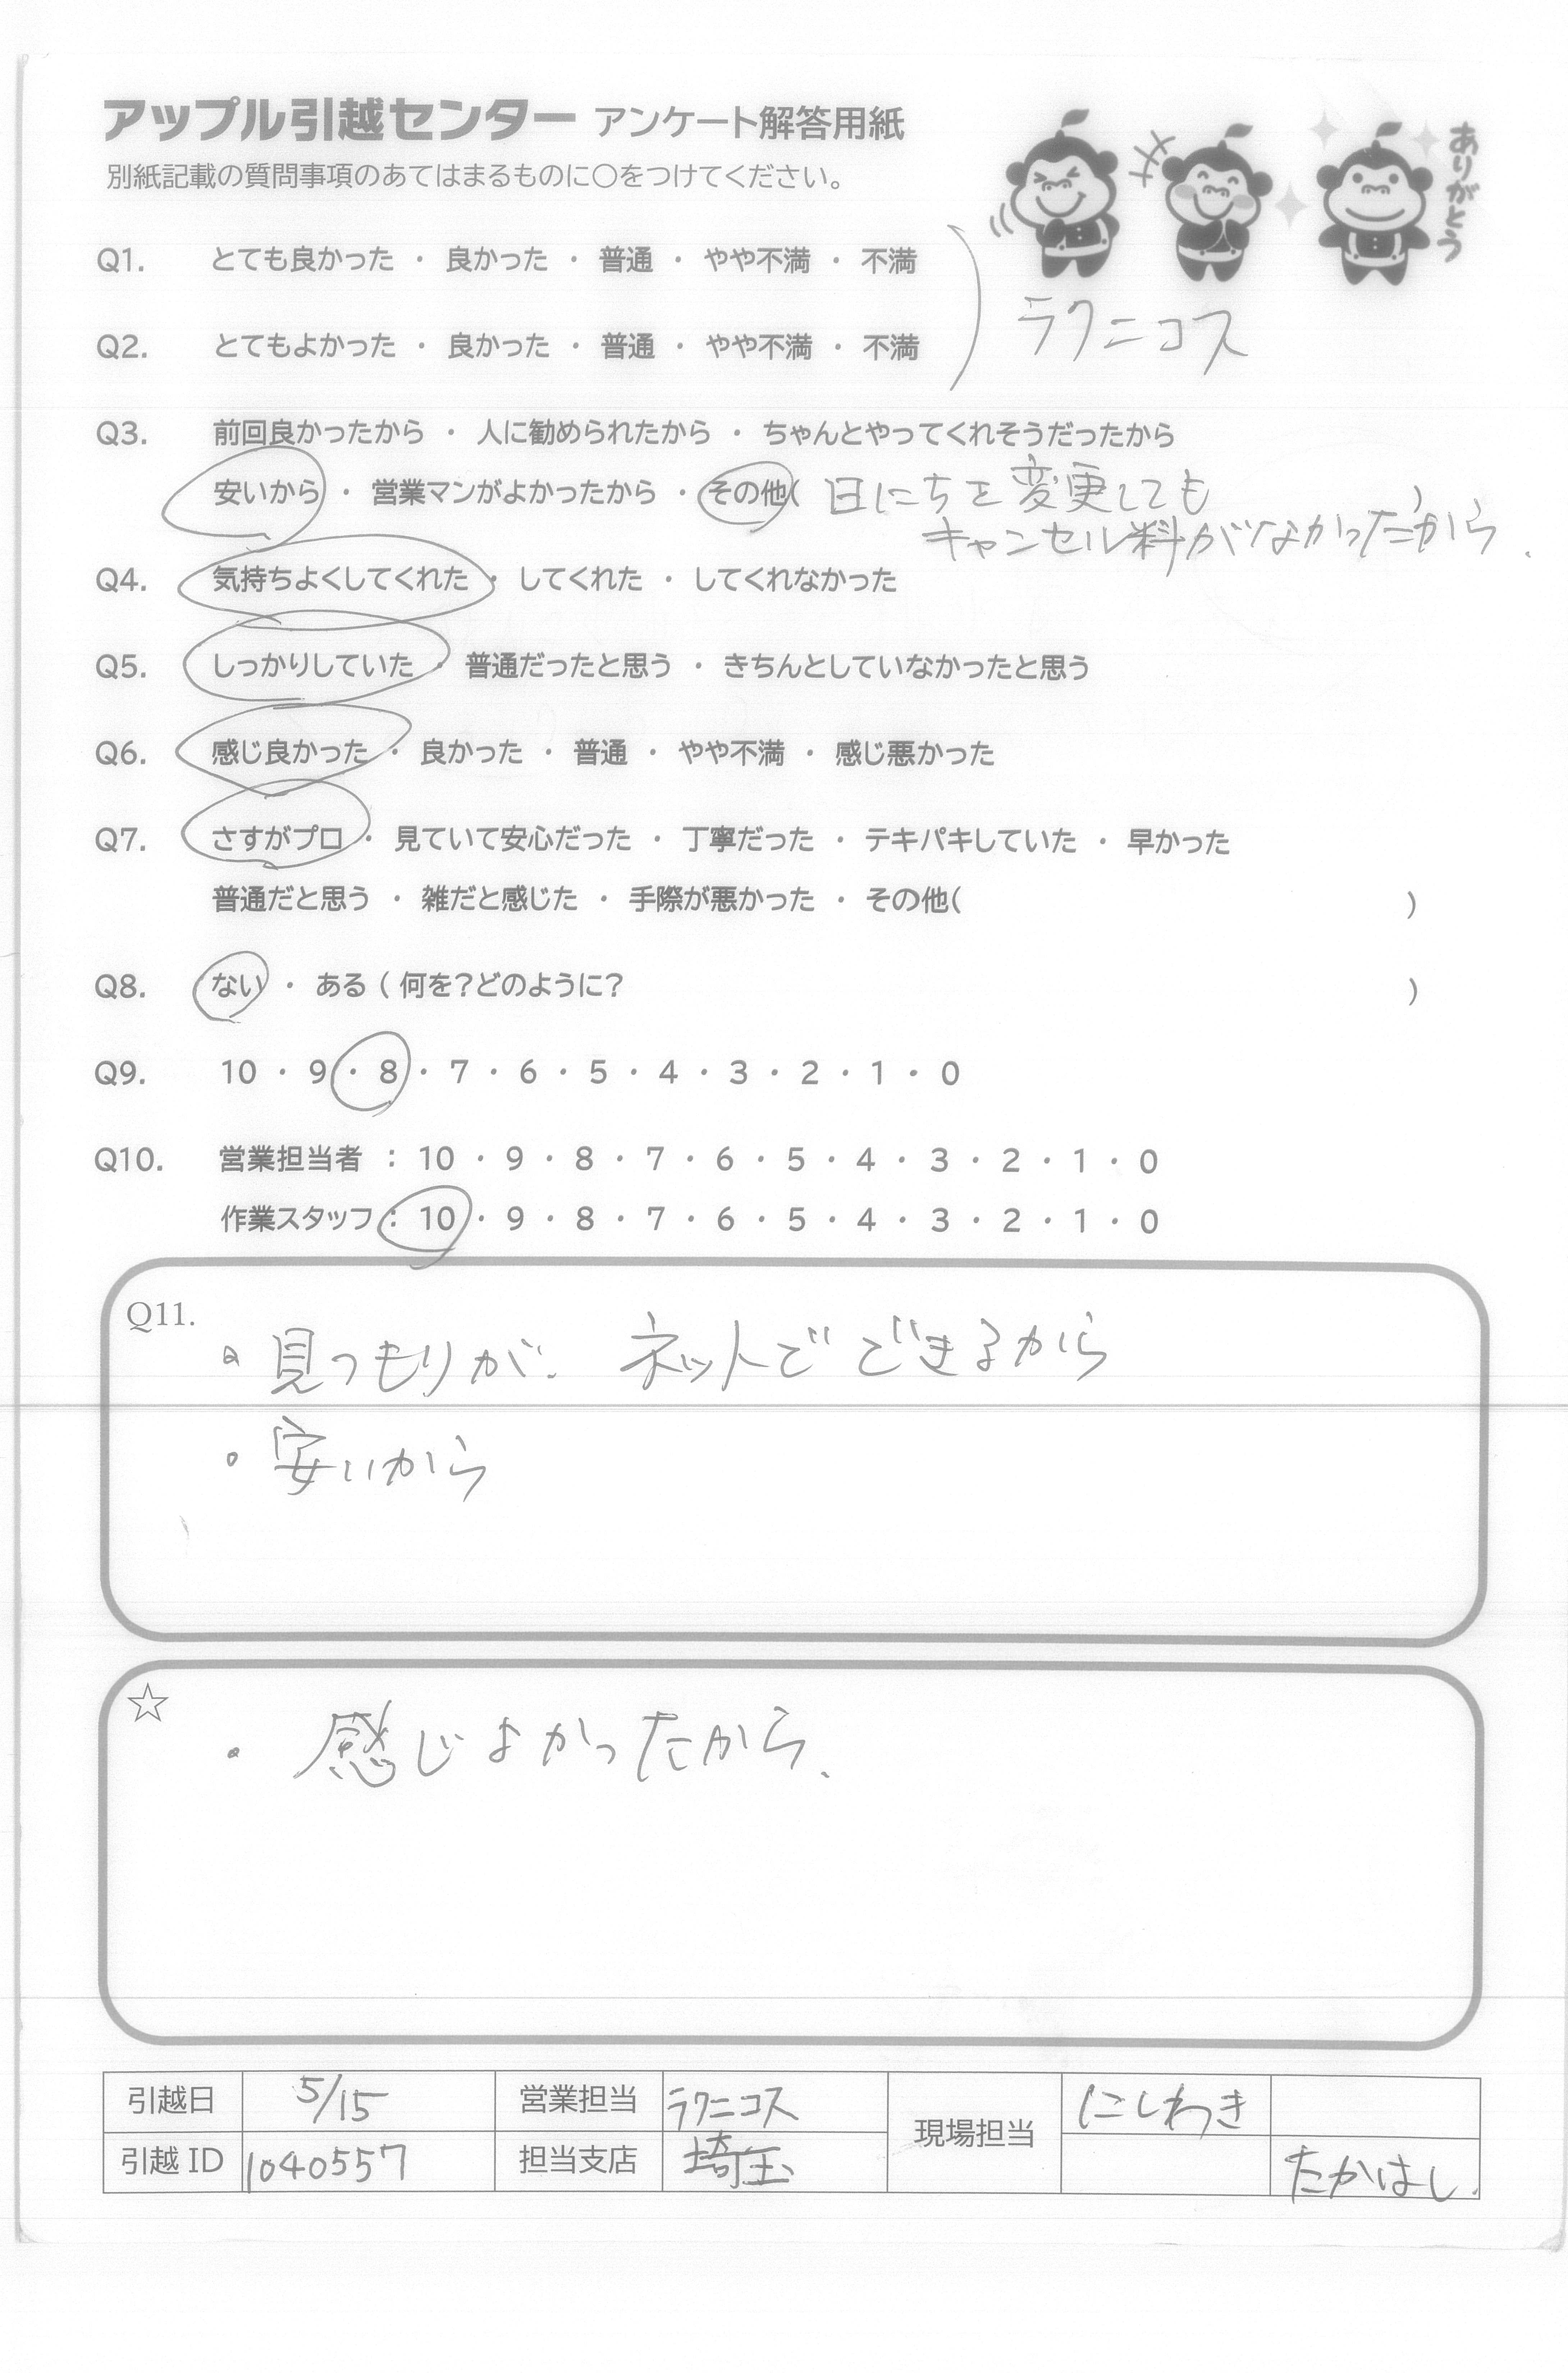 アップル引越センター アンケート解答用紙
別紙記載の質問事項のあてはまるものに○をつけてください。
ありがとう
Q1. とても良かった ・ 良かった ・ 普通 ・ やや不満 ・ 不満
Q2. とてもよかった ・ 良かった ・ 普通 ・ やや不満 ・ 不満
ラクニコス
Q3. 前回良かったから ・ 人に勧められたから ・ ちゃんとやってくれそうだったから
安いから ・ 営業マンがよかったから ・ その他( 日にちを変更しても )
キャンセル料がなかったから.
Q4. 気持ちよくしてくれた ・ してくれた ・ してくれなかった
Q5. しっかりしていた ・ 普通だったと思う ・ きちんとしていなかったと思う
Q6. 感じ良かった ・ 良かった ・ 普通 ・ やや不満 ・ 感じ悪かった
Q7. さすがプロ ・ 見ていて安心だった ・ 丁寧だった ・ テキパキしていた ・ 早かった
普通だと思う ・ 雑だと感じた ・ 手際が悪かった ・ その他( )
Q8. ない ・ ある ( 何を?どのように? )
Q9. 10 ・ 9 ・ 8 ・ 7 ・ 6 ・ 5 ・ 4 ・ 3 ・ 2 ・ 1 ・ 0
Q10. 営業担当者 : 10 ・ 9 ・ 8 ・ 7 ・ 6 ・ 5 ・ 4 ・ 3 ・ 2 ・ 1 ・ 0
作業スタッフ : 10 ・ 9 ・ 8 ・ 7 ・ 6 ・ 5 ・ 4 ・ 3 ・ 2 ・ 1 ・ 0
Q11.
・見つもりが、ネットでできるから
・安いから
☆
・感じよかったから、
引越日 5/15 営業担当 ラクニコス 現場担当 にしわき
引越 ID 1040557 担当支店 埼玉 たかはし.